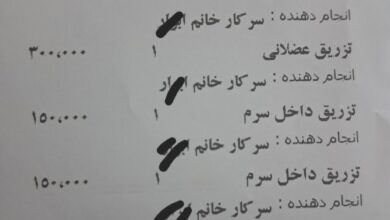 انجام دهنده : سرکار خانم
تزریق عضلانی ۱ ۳۰۰,۰۰۰
انجام دهنده : سرکار خانم
تزریق داخل سرم ۱ ۱۵۰,۰۰۰
انجام دهنده : سرکار خانم
تزریق داخل سرم ۱ ۱۵۰,۰۰۰
انجام دهنده : سرکار خانم